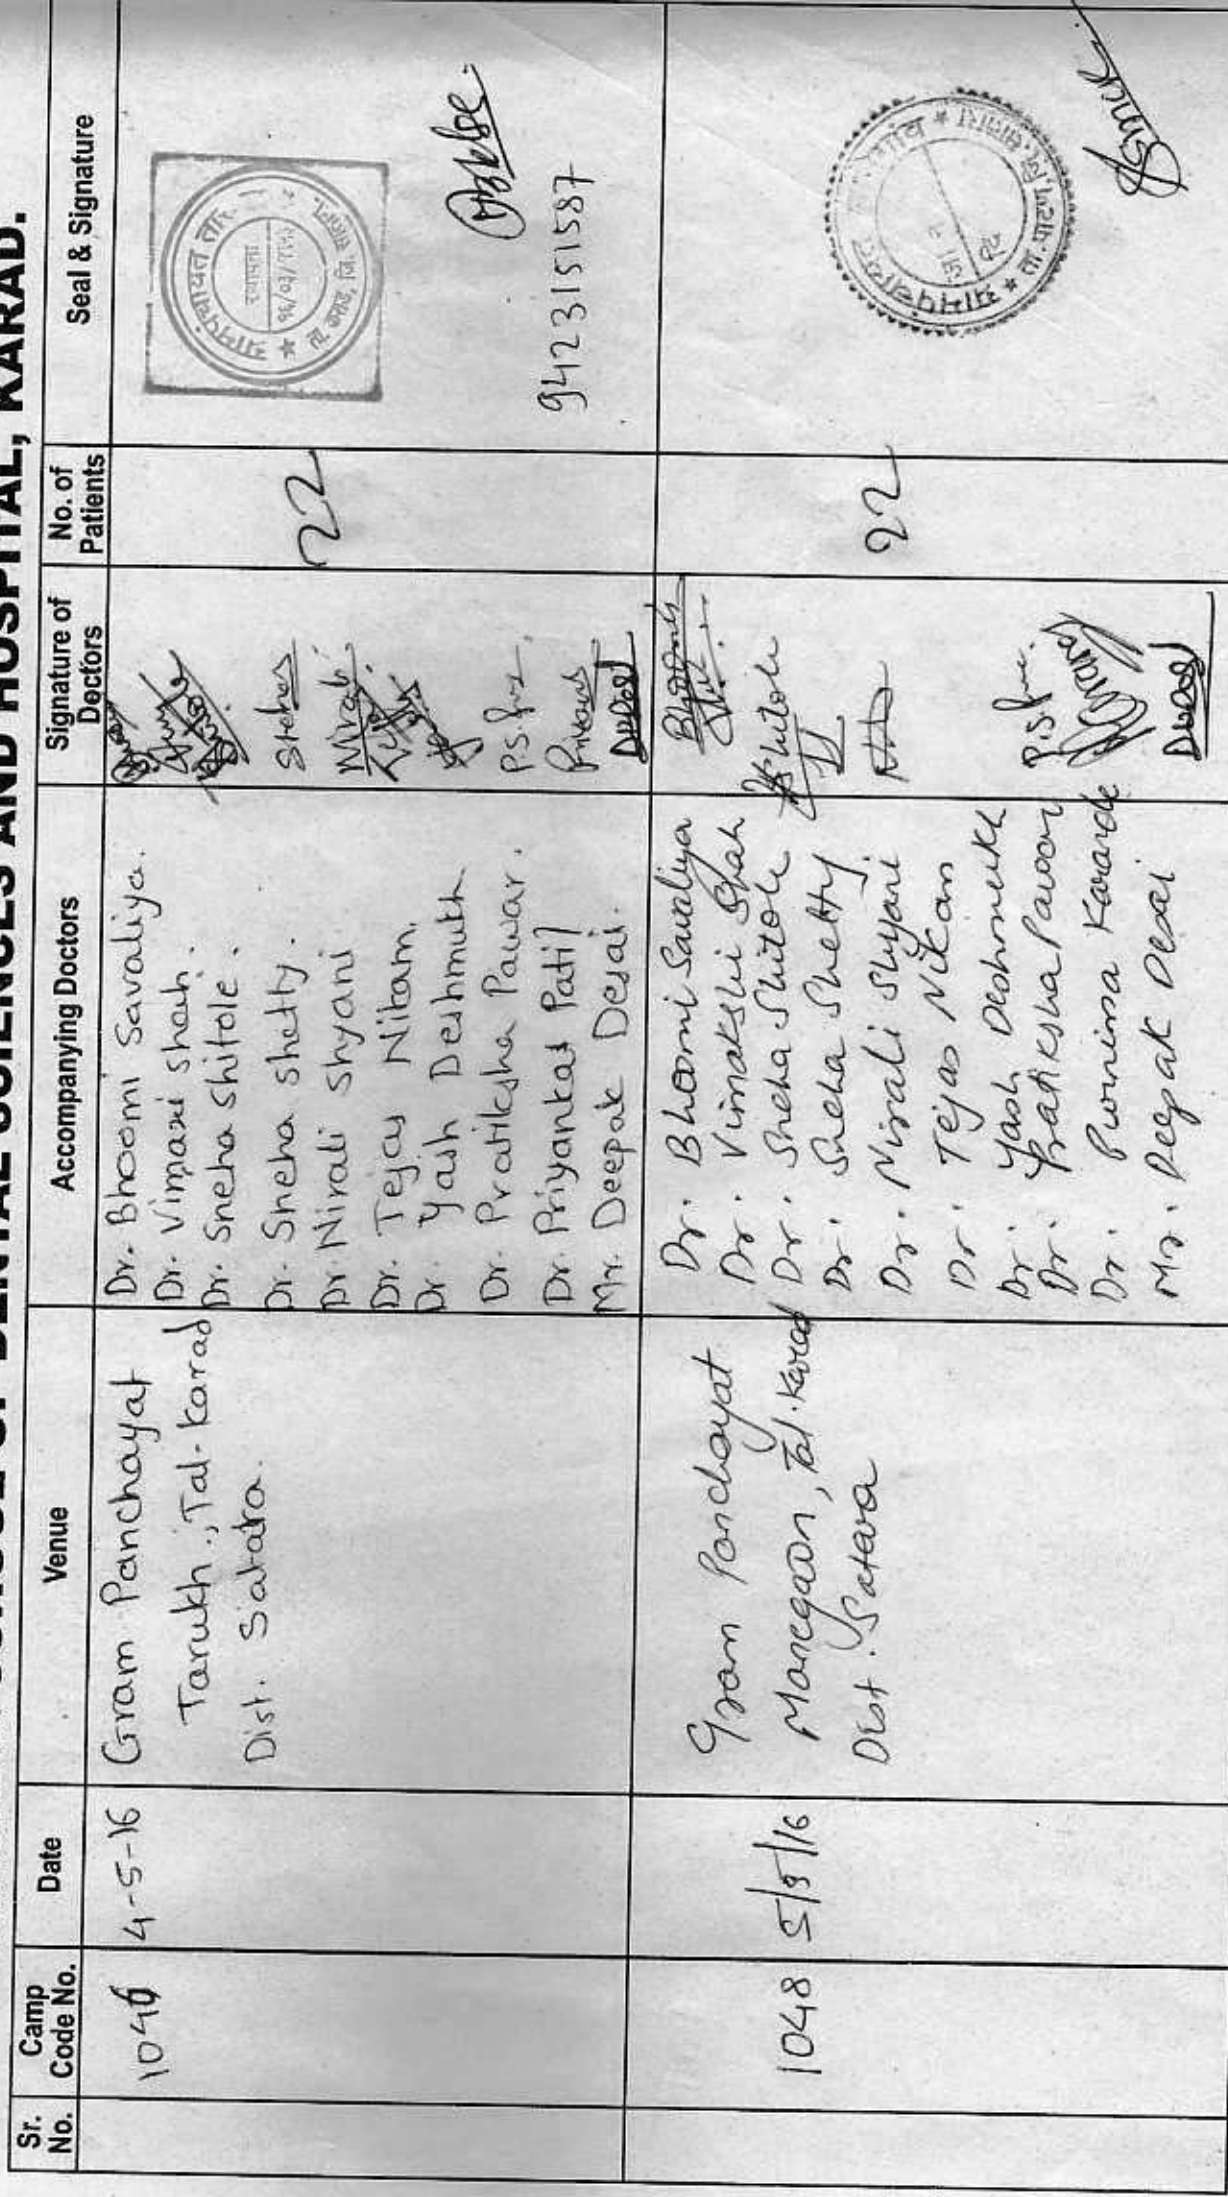 DENTAL SCIENCES AND HOSPITAL, KARAD.
Sr. No.
Camp Code No.
Date
Venue
Accompanying Doctors
Signature of Doctors
No. of Patients
Seal & Signature
4-5-16
Gram Panchayat
Tarukh., Tal-Karad
Dist. Satara.
Dr. Bhoomi Savaliya.
Dr. Vimpasi Shah.
Dr. Sneha Shitole.
Dr. Sneha Shetty.
Dr. Nirali Shyani
Dr. Tejas Nikam.
Dr. Yash Deshmukh
Dr. Pratiksha Pawar.
Dr. Priyanka Patil
Mr. Deepak Desai.
Snehas
Nirali
P.S.
Desai
22
ग्रामपंचायत
स्थापना
ता. कराड, जि. सातारा.
9423151587
1048
5/5/16
Gram Panchayat
Manegaon, Tal. Karad
Dist. Satara
Dr. Bhoomi Savaliya
Dr. Vimakshi Shah
Dr. Sneha Shitole
Dr. Sneha Shetty
Dr. Nirali Shyani
Dr. Tejas Nikam
Dr. Yash Deshmukh
Dr. Pratiksha Pawar
Dr. Purnima Karande
Mr. Deepak Desai
Shitole
P.S.
Desai
22
ग्रामपंचायत
ता. पाटण, जि. सातारा